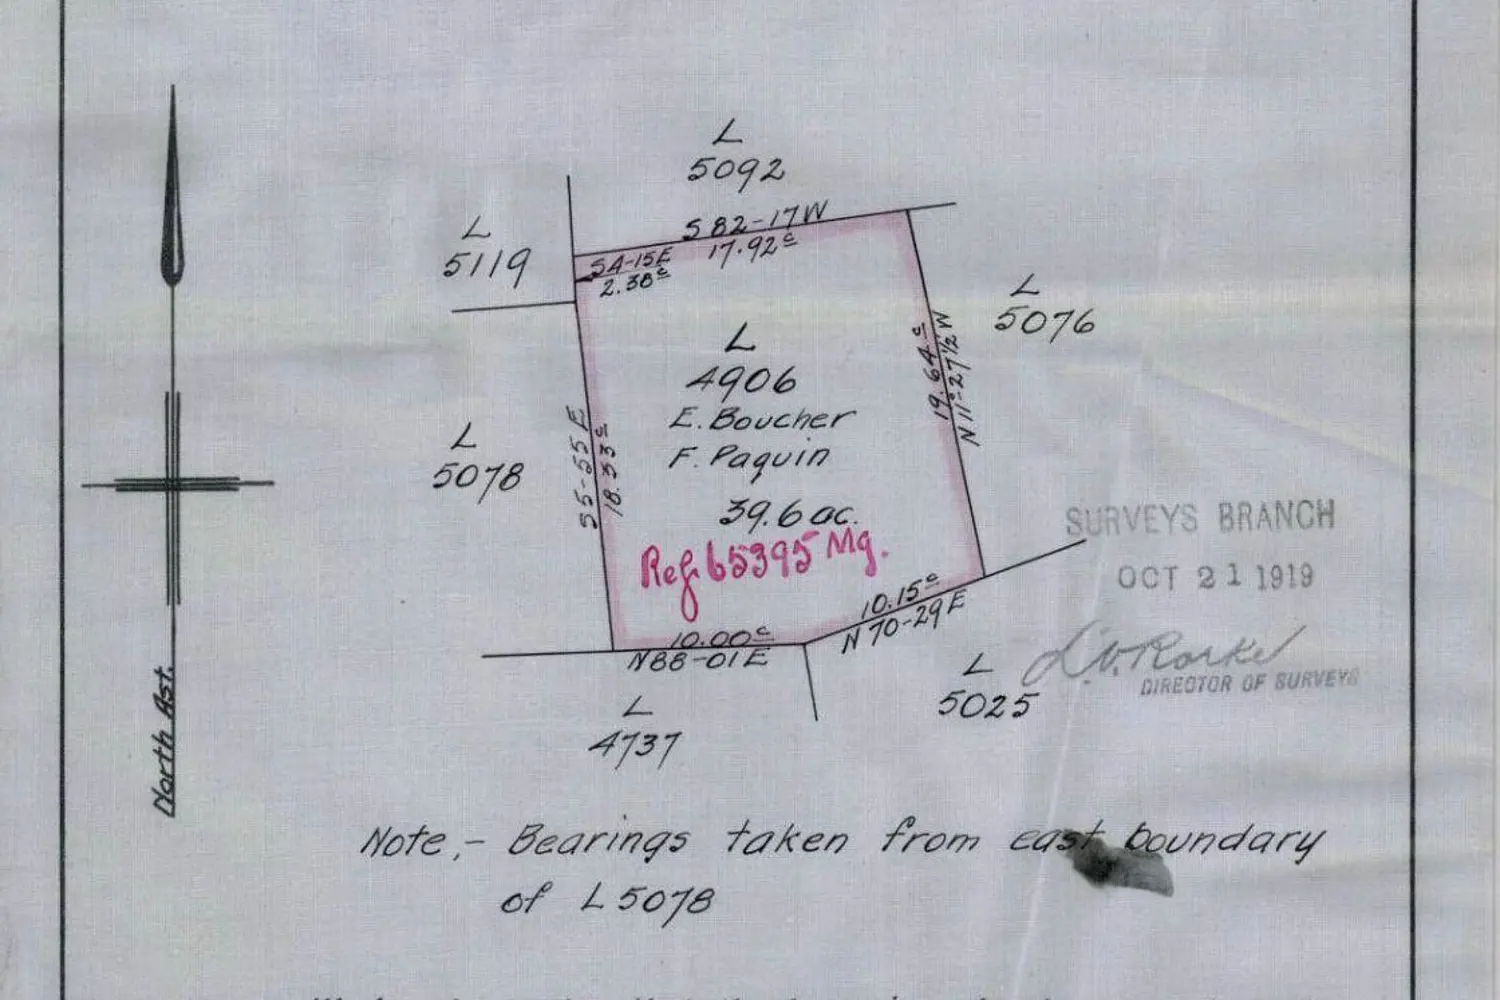 L
5092
L
5119
S 82-17 W
17.92ᶜ
S4-15E
2.38ᶜ
L
5076
19.64ᶜ
N 11°-27½ W
L
4906
E. Boucher
F. Paquin
39.6 ac.
Ref. 65395 Mg.
L
5078
S5-55 E
18.53ᶜ
SURVEYS BRANCH
OCT 21 1919
L.V. Rorke
DIRECTOR OF SURVEYS
10.00ᶜ
N88-01E
10.15ᶜ
N 70-29 E
L
5025
L
4737
North Ast.
Note,- Bearings taken from east boundary
of L 5078